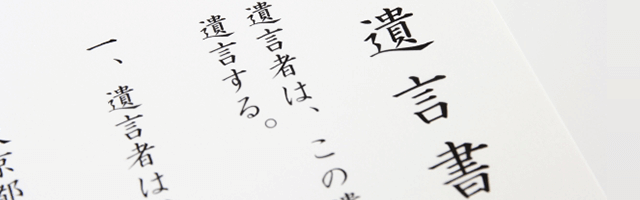 遺言書
遺言者は、この
遺言する。
一、遺言者は
京都